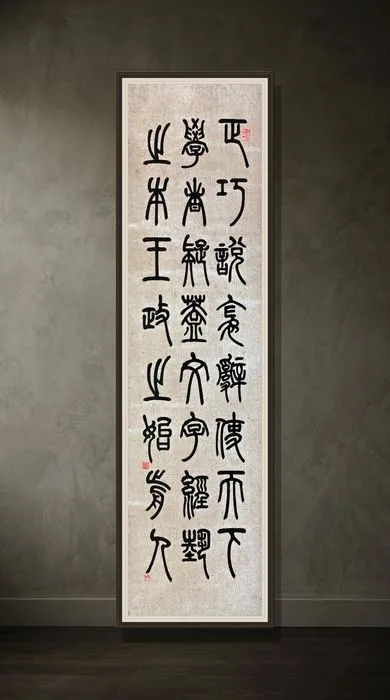 正巧說衺辭使天下
學者疑蓋文字經藝
之本王政之始前人